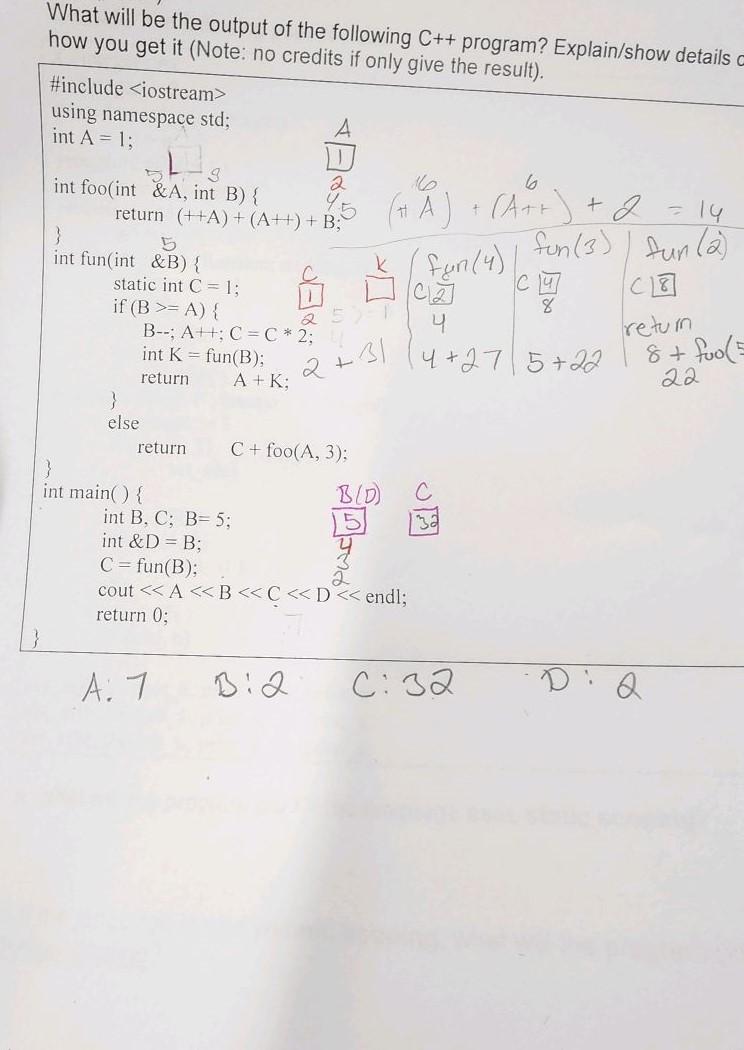 What will be the output of the following C++ program? Explain/show details
how you get it (Note: no credits if only give the result).
#include <iostream>
using namespace std;
int A = 1;
A
1
2
4
5
5
int foo(int &A, int B) {
return (++A) + (A++) + B;
}
6
(++A) + (A++) + 2 = 14
5
int fun(int &B) {
static int C = 1;
if (B >= A) {
B--; A++; C = C * 2;
int K = fun(B);
return A + K;
}
else
return C + foo(A, 3);
}
C
1
2
K
2 + 31
fun(4)
C 2
4
4 + 27
fun(3)
C 4
8
5 + 22
fun(2)
C 8
return
8 + foo(5
22
int main( ) {
int B, C; B= 5;
int &D = B;
C = fun(B);
cout << A << B << C << D << endl;
return 0;
}
B(D)
5
4
3
2
C
32
A: 7 B: 2 C: 32 D: 2